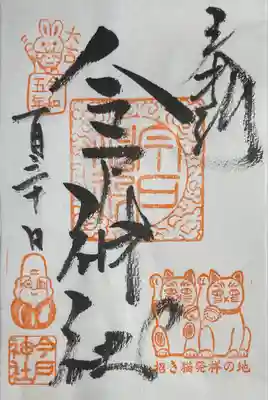 奉拝
今戸神社
今戸
大吉
令和
五年
一月二十日
今戸
神社
招き猫発祥の地